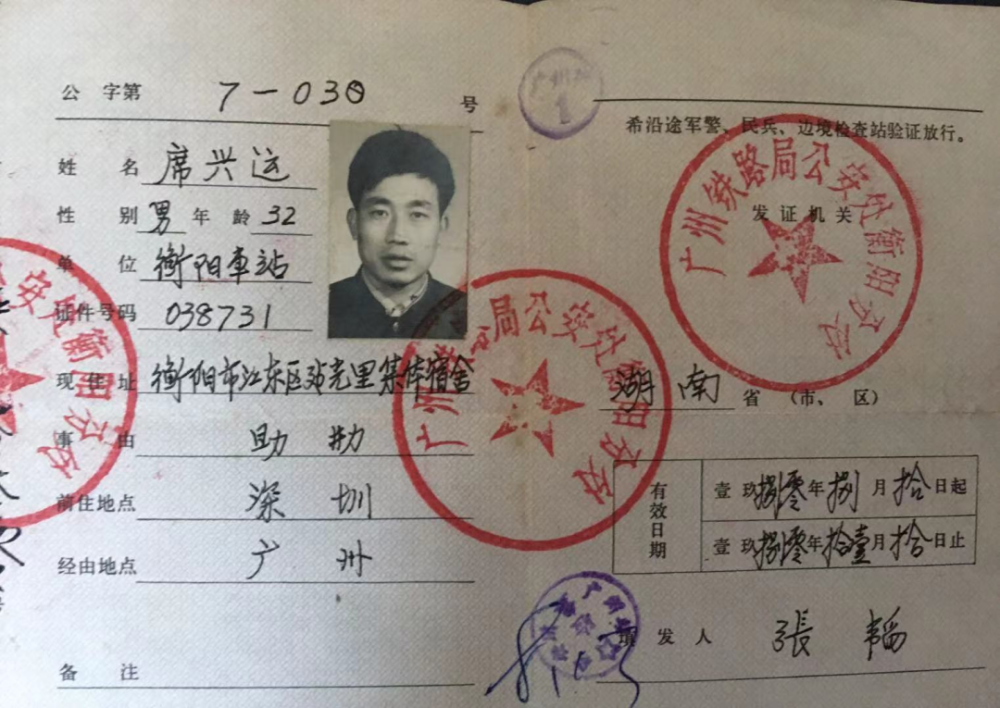 公字第 7-030 号
姓名 席兴运
性别 男 年龄 32
单位 衡阳車站
证件号码 038731
现住址 衡阳市江东区站先里集体宿舍
事由 助勤
前往地点 深圳
经由地点 广州
备注
希沿途军警、民兵、边境检查站验证放行。
发证机关
广州铁路局公安处衡阳分处
湖南省（市、区）
有效日期
壹玖捌零年捌月拾日起
壹玖捌零年拾壹月拾日止
填发人 張韬
广州铁路局公安处衡阳分处
安处衡阳分处